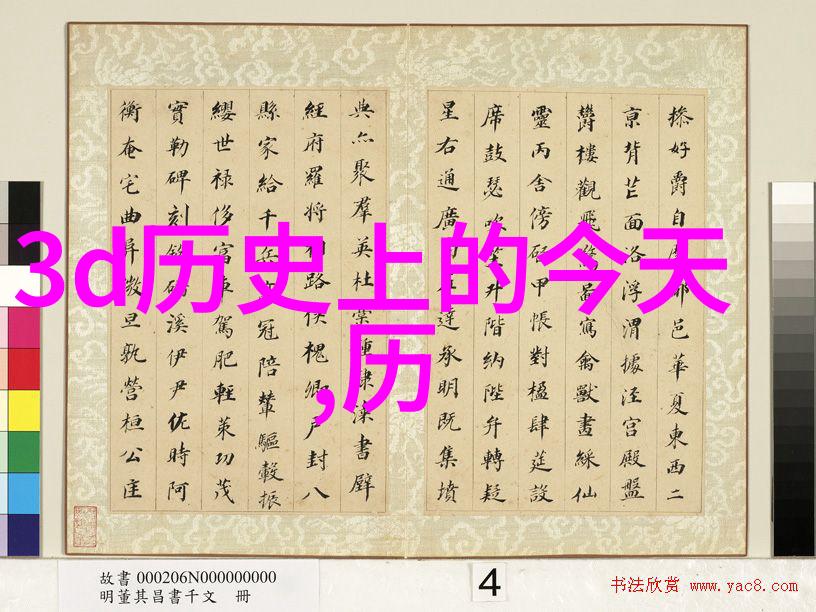 操好爵自縻都邑華夏東西二
京背芒面洛浮渭據涇宮殿盤
鬱樓觀飛驚圖寫禽獸畫綵仙
靈丙舍傍啟甲帳對楹肆筵設
席鼓瑟吹笙升階納陛弁轉疑
星右通廣內左達承明既集墳
典亦聚羣英杜稾鍾隸漆書壁
經府羅將相路俠槐卿戶封八
縣家給千兵高冠陪輦驅轂振
纓世祿侈富車駕肥輕策功茂
實勒碑刻銘磻溪伊尹佐時阿
衡奄宅曲阜微旦孰營桓公匡
3d历史上的今天
,历
故書 000206N000000000
明董其昌書千文 冊
4
书法欣赏 www.yac8.com